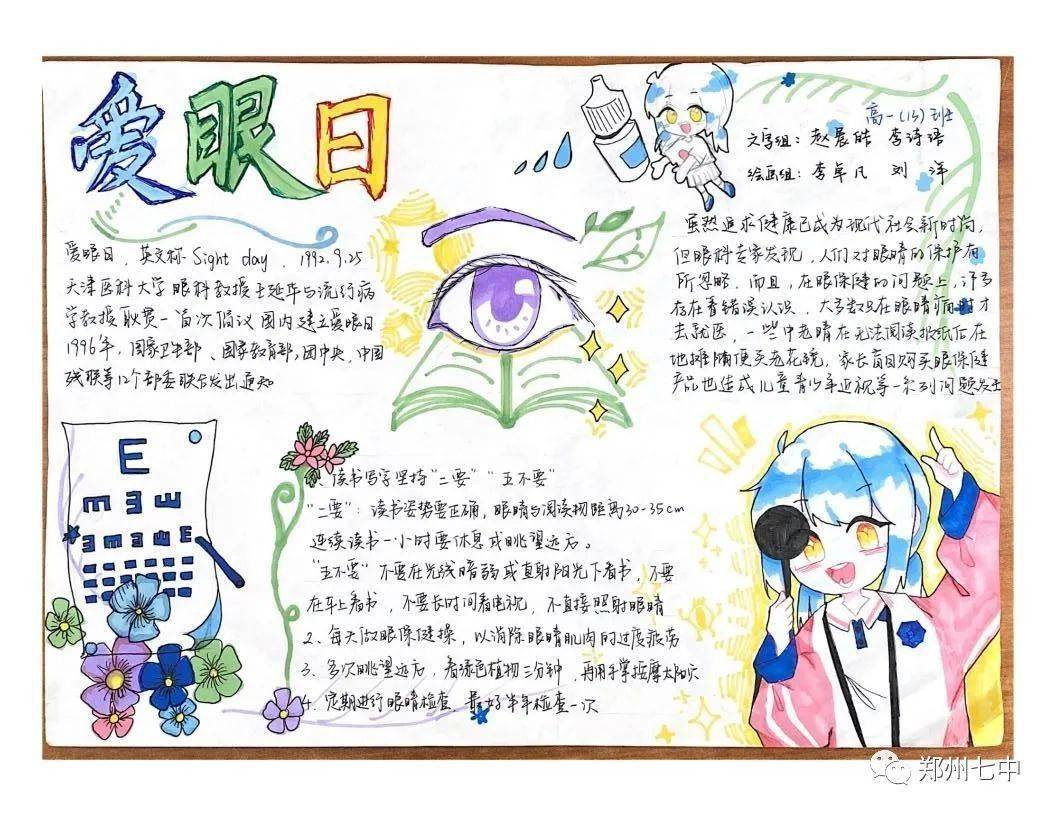 爱眼日
高一(13)班
文字组：赵晨皓 李诗语
绘画组：李卓凡 刘洋
爱眼日，英文称 Sight day，1992.9.25
天津医科大学眼科教授王延华与流行病
学教授耿贯一首次倡议国内建立爱眼日
1996年，国家卫生部、国家教育部、团中央、中国
残联等12个部委联合发出通知
虽然追求健康已成为现代社会新时尚，
但眼科专家发现，人们对眼睛的保护有
所忽略，而且，在眼保健的问题上，许多
存在着错误认识，大多数只在眼睛痛时才
去就医，一些中老晴在无法阅读报纸后在
地摊随便买老花镜，家长盲目购买眼保健
产品也造成儿童青少年近视等一系列问题发生
E
E
1、读书写字坚持“二要”“五不要”
“二要”：读书姿势要正确，眼睛与阅读物距离30-35cm
连续读书一小时要休息或眺望远方。
“五不要”不要在光线暗弱或直射阳光下看书，不要
在车上看书，不要长时间看电视，不直接照射眼睛
2、每天做眼保健操，以消除眼睛肌肉的过度疲劳
3、多次眺望远方，看绿色植物三分钟，再用手掌按摩太阳穴
4、定期进行眼睛检查，最好半年检查一次
郑州七中